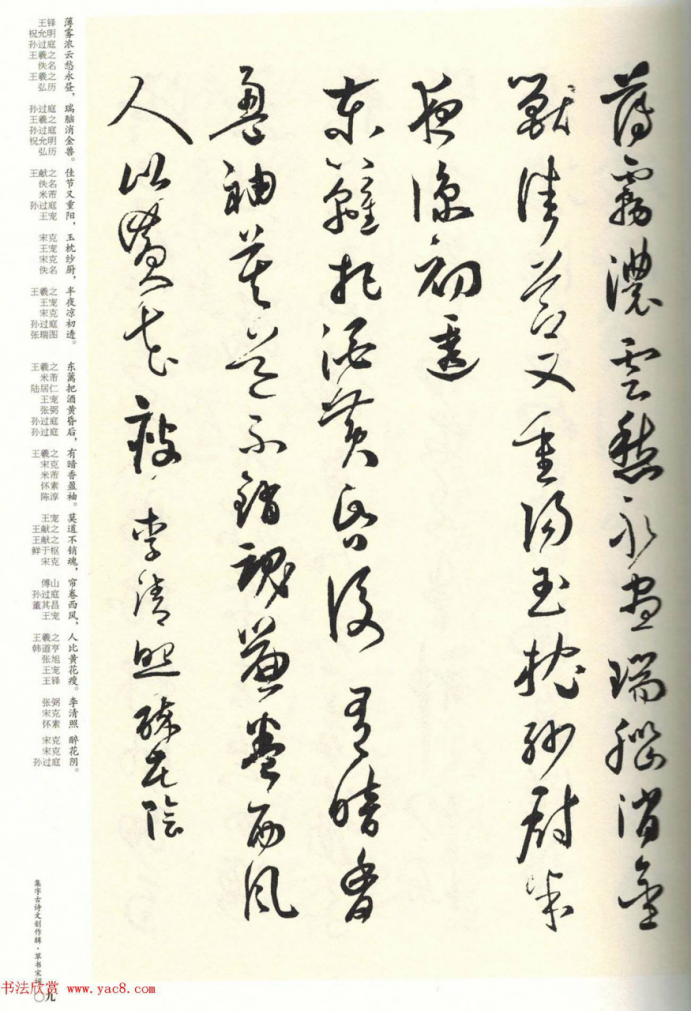 薄霧濃雲愁永晝瑞腦消金
獸佳節又重陽玉枕紗厨半
夜涼初透
東籬把酒黃昏後有暗香
盈袖莫道不銷魂簾卷西風
人比黃花瘦李清照醉花陰
薄雾浓云愁永昼，
王铎 祝允明 孙过庭 王羲之 佚名 王羲之 弘历
瑞脑消金兽。
孙过庭 王羲之 孙过庭 祝允明 弘历
佳节又重阳，
王献之 佚名 米芾 孙过庭 王宠
玉枕纱厨，
宋克 王宠 宋克 佚名
半夜凉初透。
王羲之 王宠 宋克 孙过庭 张瑞图
东篱把酒黄昏后，
王羲之 米芾 陆居仁 王宠 张弼 孙过庭 孙过庭
有暗香盈袖。
王羲之 宋克 米芾 怀素 陈淳
莫道不销魂，
王宠 王献之 王献之 鲜于枢 宋克
帘卷西风，
傅山 孙过庭 董其昌 王宠
人比黄花瘦。
王羲之 韩道亨 张旭 王宠 王铎
李清照
张弼 宋克 怀素
醉花阴。
宋克 宋克 孙过庭
集字古诗文创作辑·草书宋词
〇九
书法欣赏 www.yac8.com